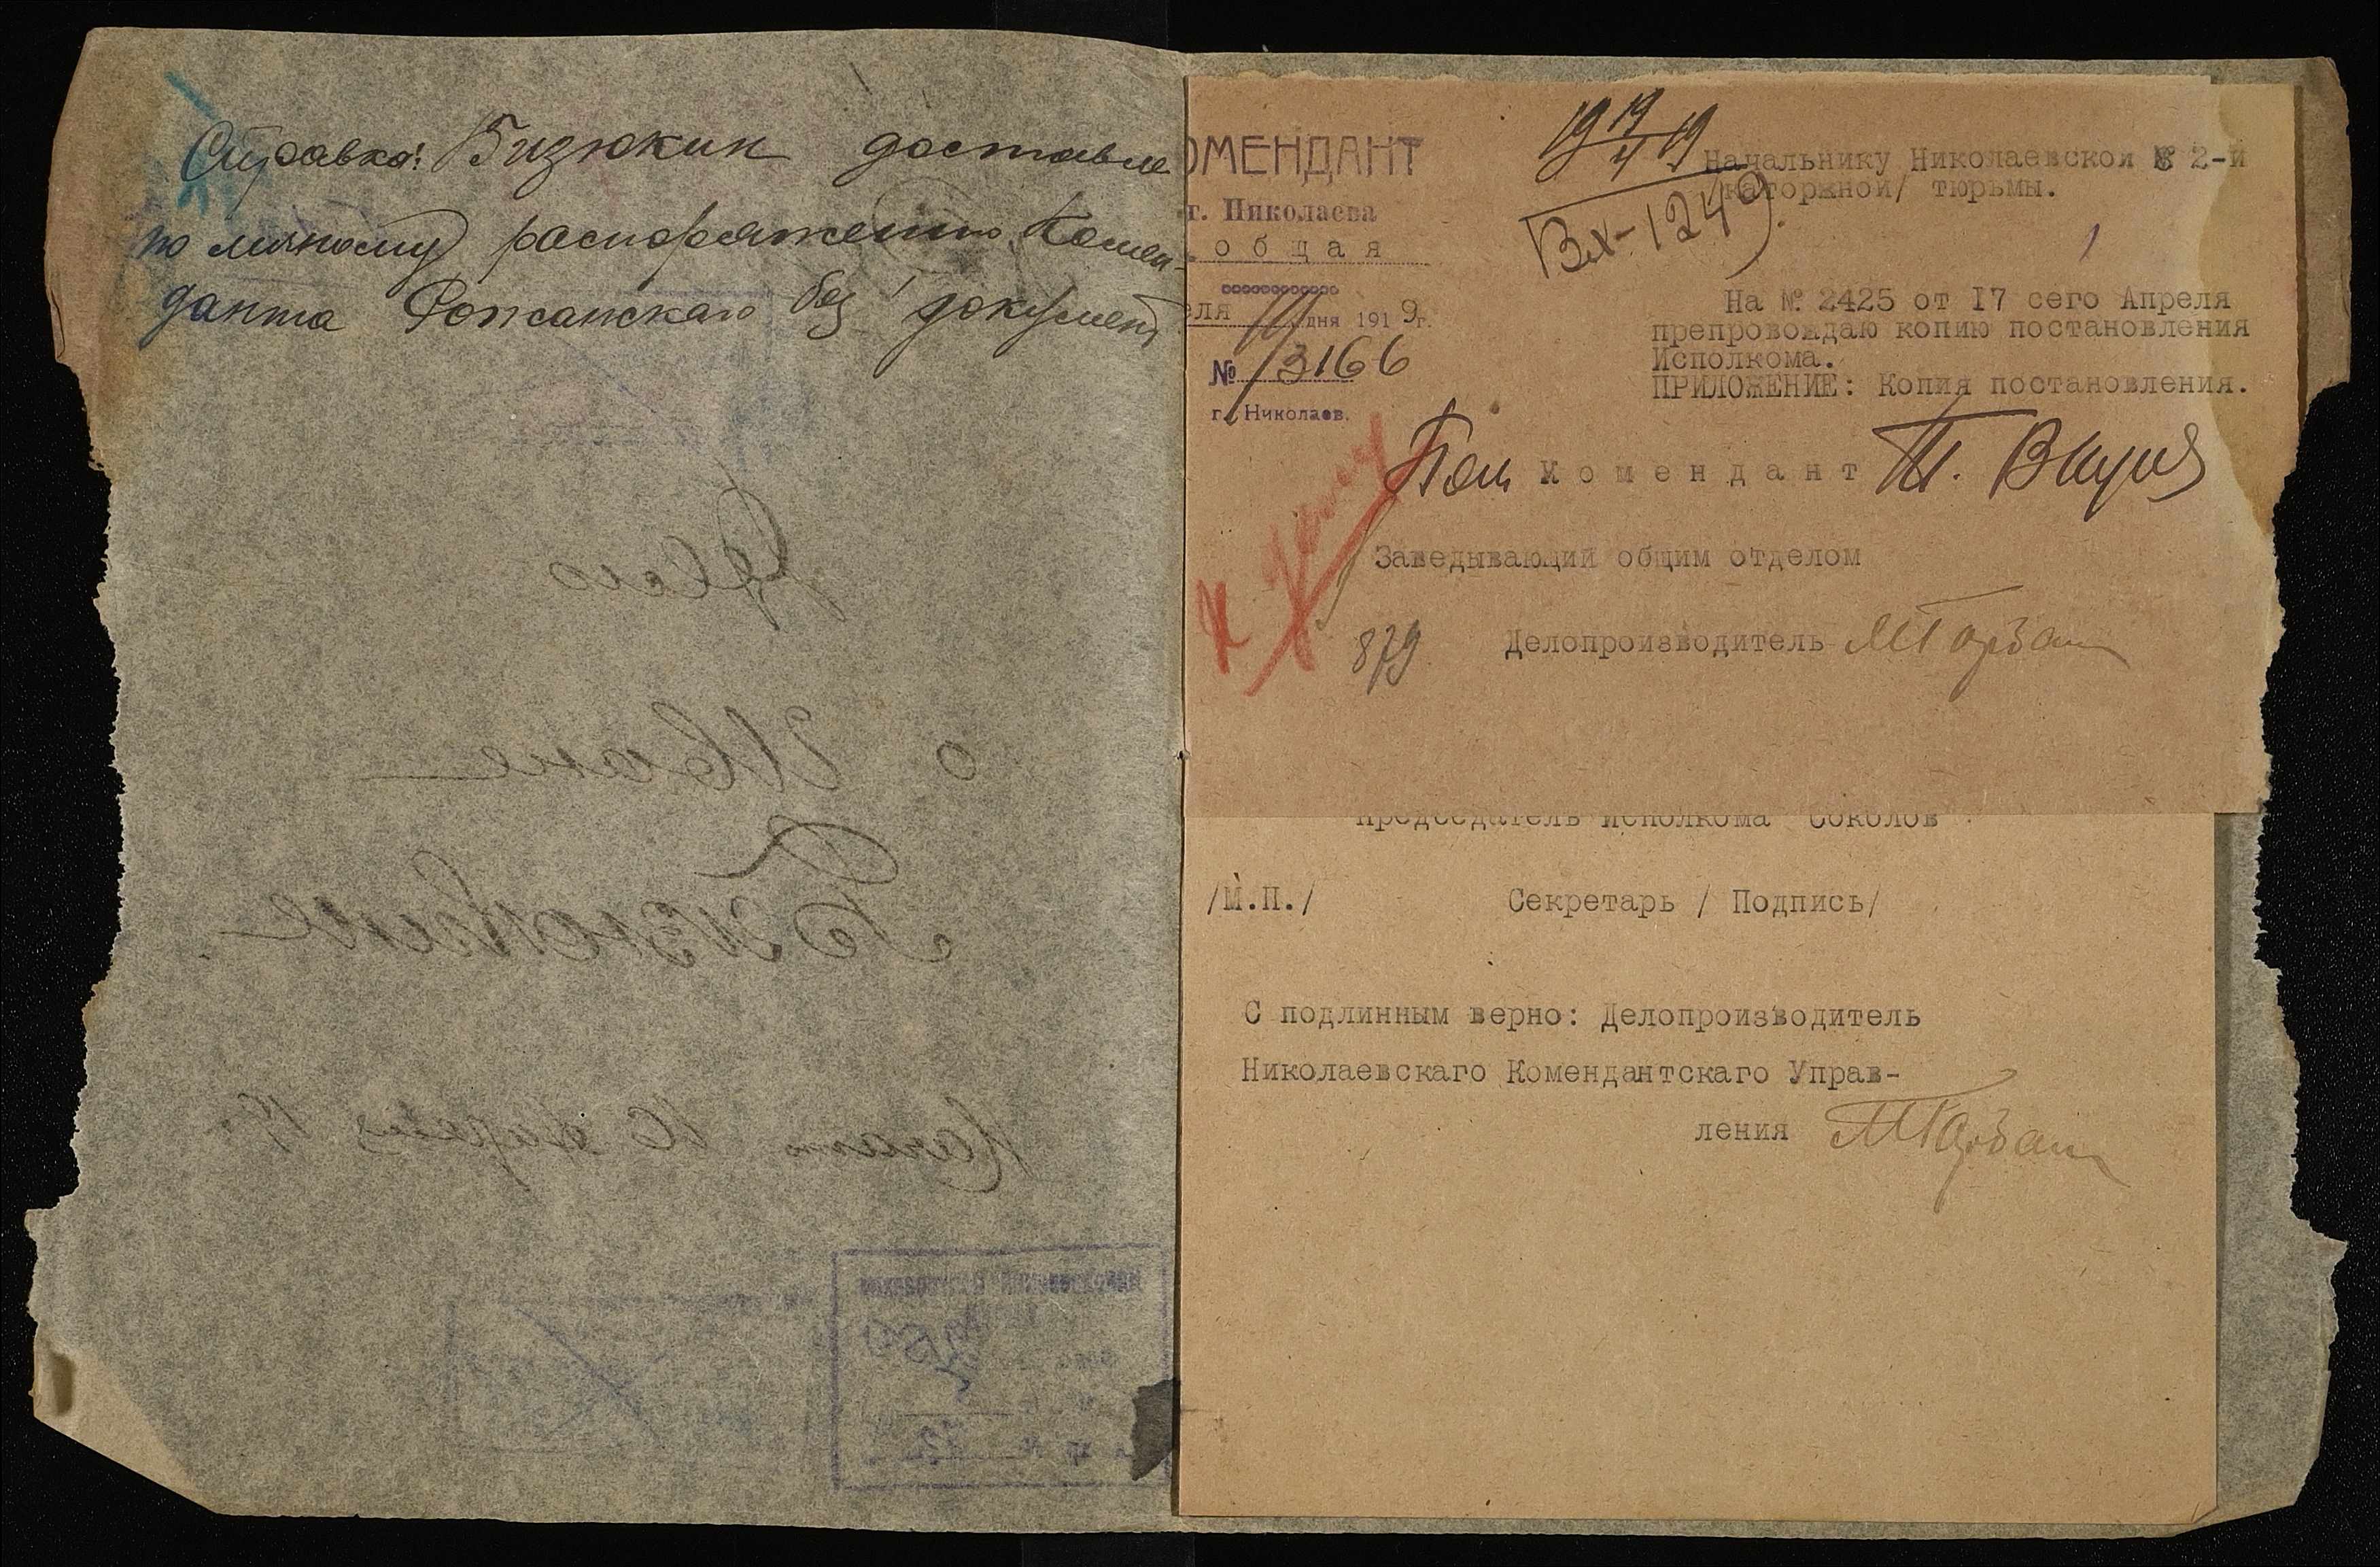 Справка: Бизюкин доставле
по личному распоряжению Комен-
данта Рожанскаго без документ
Дело
о Иване
Бизюкине
Начато 16 Апреля 19
ОМЕНДАНТ
г. Николаева
общая
еля дня 1919г.
№ 3166
г. Николаев.
19 19/4 19
Вх-1249
Начальнику Николаевской № 2-й
/каторжной/ тюрьмы.
1
На № 2425 от 17 сего Апреля
препровождаю копию постановления
Исполкома.
ПРИЛОЖЕНИЕ: Копия постановления.
Пом Комендант
К делу
Заведывающий общим отделом
879 Делопроизводитель
Председатель Исполкома Соколов
/М.П./ Секретарь / Подпись/
С подлинным верно: Делопроизводитель
Николаевскаго Комендантскаго Управ-
ления